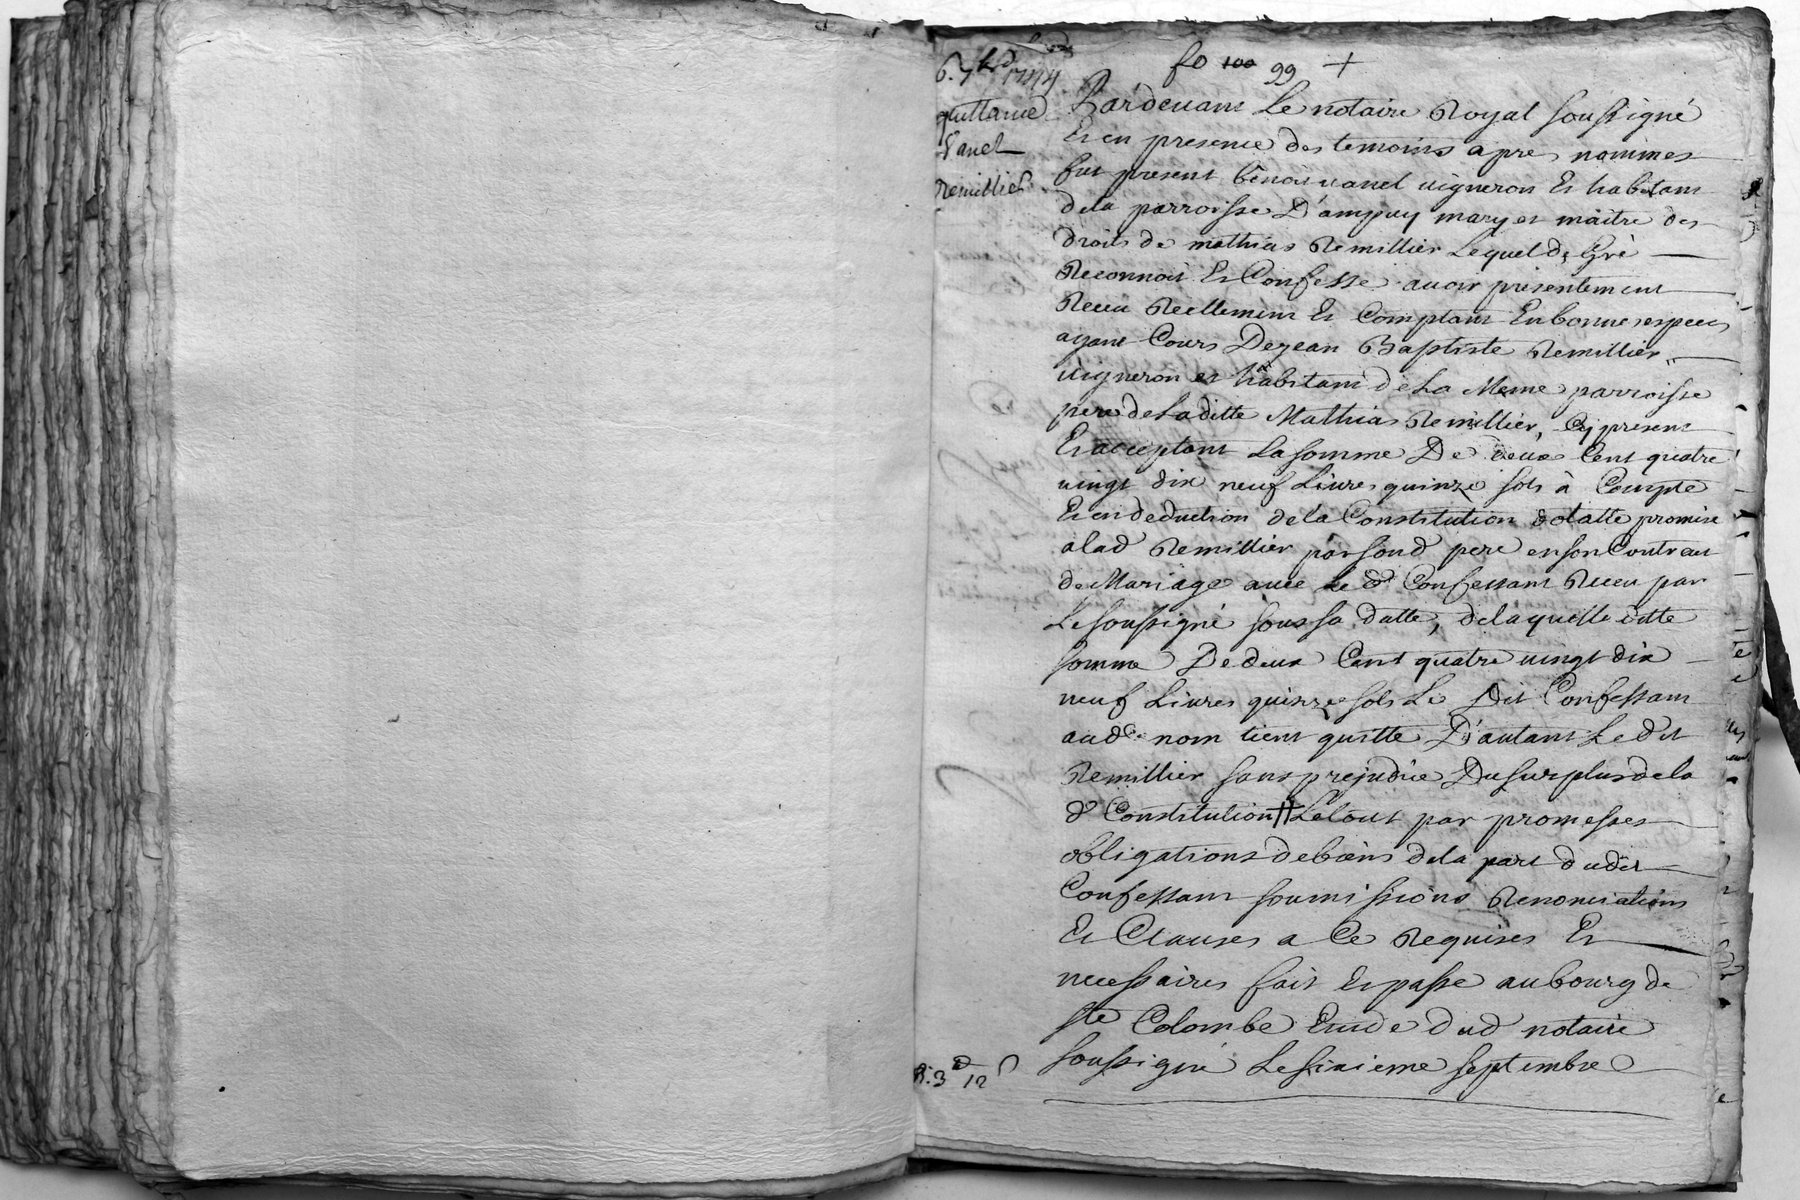 fo 100 99 +
6. 7bre 1774
quittance
Vanel
Remillier
Pardevant Le notaire Royal soussigné
Et en presence des temoins apres nommes
fut present benoit vanel vigneron Et habitant
dela parroisse D'ampuy mary et maitre des
droits de mathias Remillier Lequel de Gré
Reconnoit Et Confesse avoir presentement
Receu Reellement Et Comptant En bonnes especes
ayant Cours De jean Baptiste Remillier
vigneron et habitant de La Meme parroisse
pere de Laditte Mathias Remillier, Cy present
Et acceptant La somme De deux Cent quatre
vingt dix neuf Livres quinze sols à Compte
Et en deduction de la Constitution dotalle promise
a lad Remillier par sond pere en son Contract
de Mariage avec le d Confessant Receu par
Le soussigné sous sa datte, de laquelle ditte
somme De deux Cent quatre vingt dix
neuf Livres quinze sols Le Dit Confessant
aud nom tient quitte D'autant Le dit
Remillier sans prejudice Du surplus de la
d Constitution ++ Le tout par promesses
obligations de biens de la part dudit
Confessant soumissions Renonciations
Et Clauses a Ce Requises Et
necessaires fait Et passé au bourg de
Ste Colombe Etude dud notaire
soussigné Le sixieme septembre